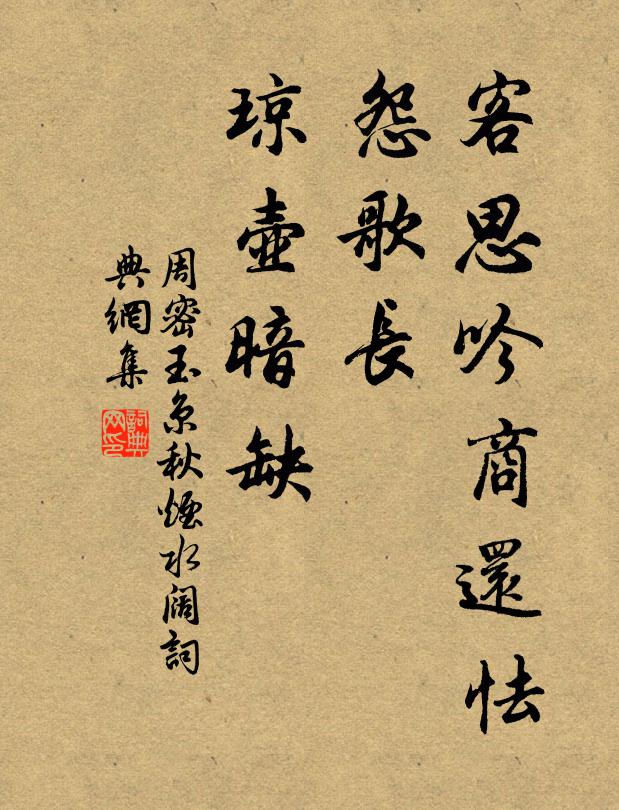 客思吟商還怯
怨歌長
琼壺暗缺
周密玉京秋煙水阔詞
典網集
詞典网印